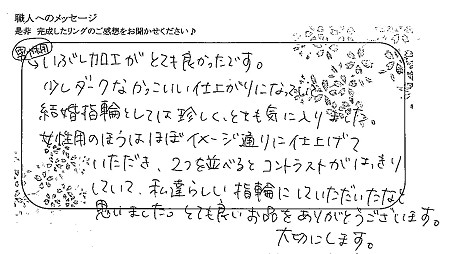 職人へのメッセージ
是非 完成したリングのご感想をお聞かせください♪
男性用
→いぶし加工がとても良かったです。
少しダークなかっこいい仕上がりになっていて
結婚指輪としては珍しく、とても気に入りました。
女性用のほうはほぼイメージ通りに仕上げて
いただき、2つを並べるとコントラストがはっきり
していて、私達らしい指輪にしていただいたなと
思いました。とても良いお品をありがとうございます。
大切にします。